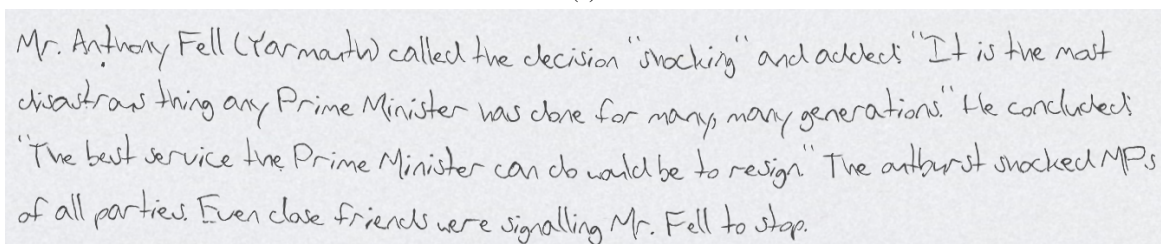 Mr. Anthony Fell (Yarmouth) called the decision "shocking" and added: "It is the most
disastrous thing any Prime Minister has done for many, many generations." He concluded:
"The best service the Prime Minister can do would be to resign." The outburst shocked MPs
of all parties. Even close friends were signalling Mr. Fell to stop.